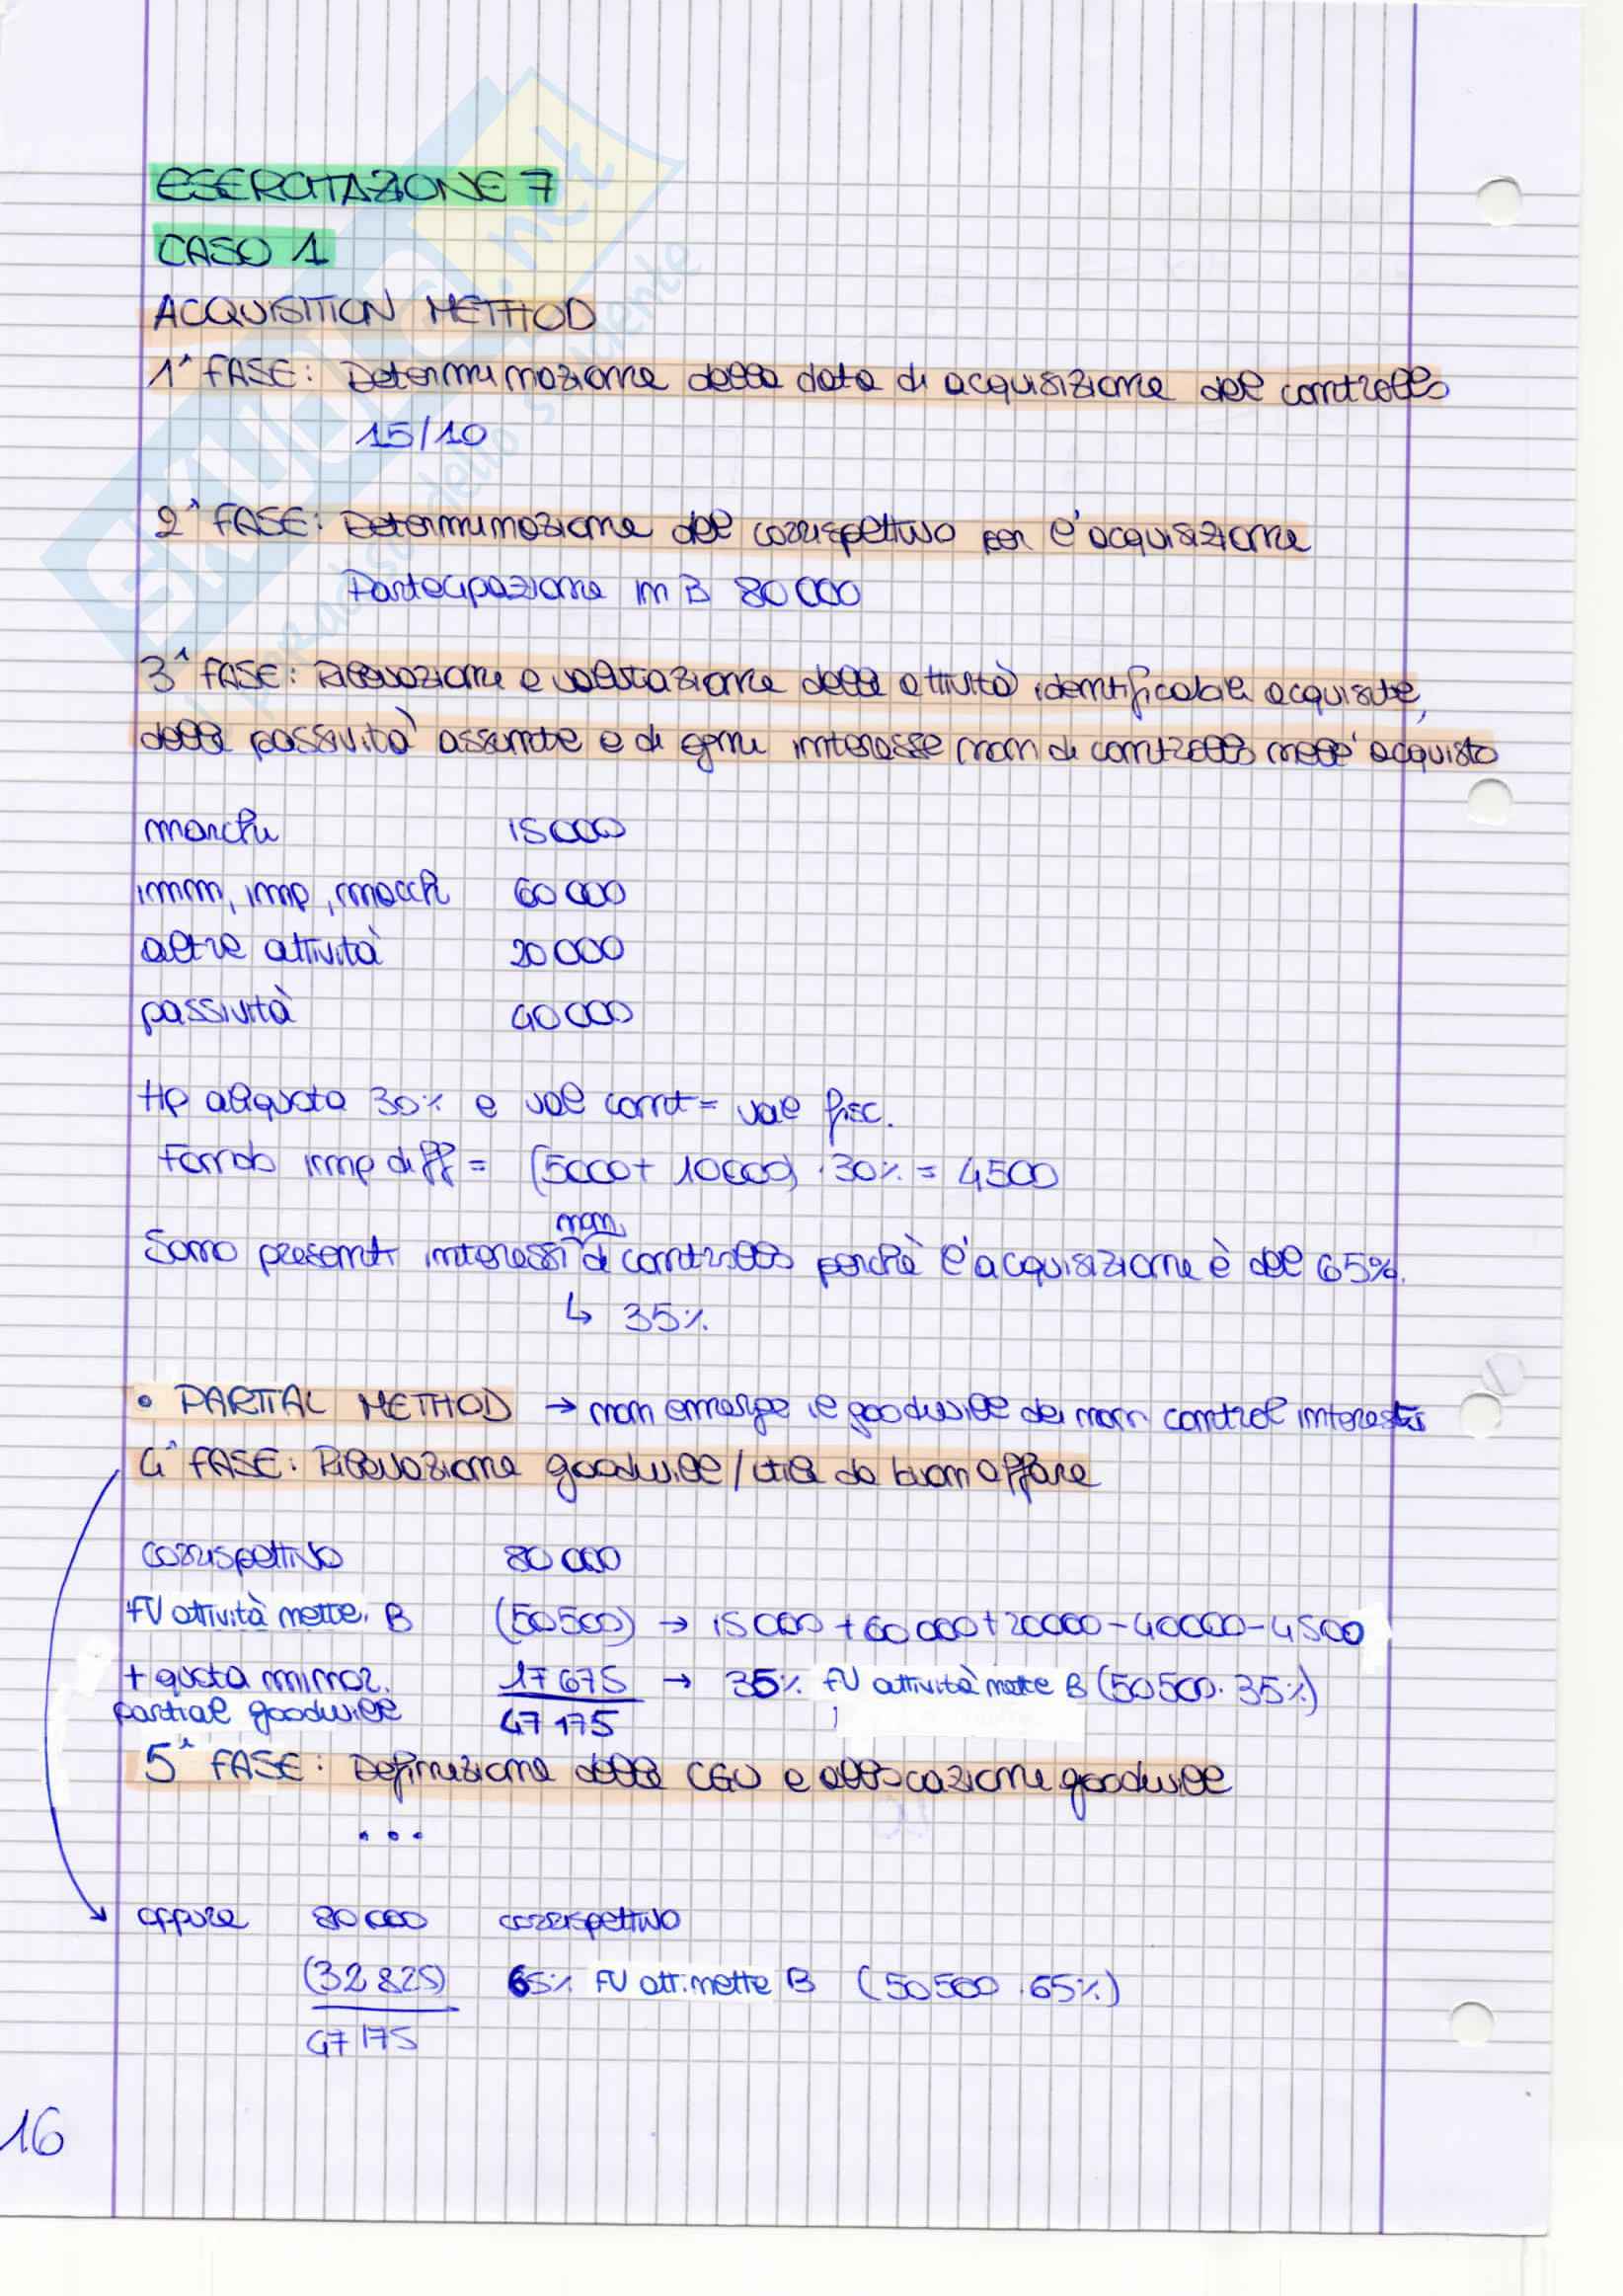 ESERCITAZIONE 7
CASO 1
ACQUISITION METHOD
1^ FASE: Determinazione della data di acquisizione del controllo
15/10
2^ FASE: Determinazione del corrispettivo per l'acquisizione
Partecipazione in B 80 000
3^ FASE: Rilevazione e valutazione delle attività identificabili acquisite,
delle passività assunte e di ogni interesse non di controllo nell'acquisto
marchi 15 000
imm, imp, macch 60 000
altre attività 20 000
passività 40 000
Hp aliquota 30% e val cont = val fisc.
Fondo imp diff = (5000 + 10 000) · 30% = 4500
Sono presenti interessi non di controllo perchè l'acquisizione è del 65%.
↳ 35%
• PARTIAL METHOD → non emerge il goodwill dei non control interests
4^ FASE: Rilevazione goodwill / utile da buon affare
corrispettivo 80 000
FV attività nette B (50 500) → 15 000 + 60 000 + 20000 - 40000 - 4500
+ quota minor. 17 675 → 35% FV attività nette B (50 500 · 35%)
partial goodwill 47 175
5^ FASE: Definizione delle CGU e allocazione goodwill
...
oppure 80 000 corrispettivo
(32 825) 65% FV att. nette B (50 500 · 65%)
47 175
16
SKUOLA.net
il paradiso dello studente